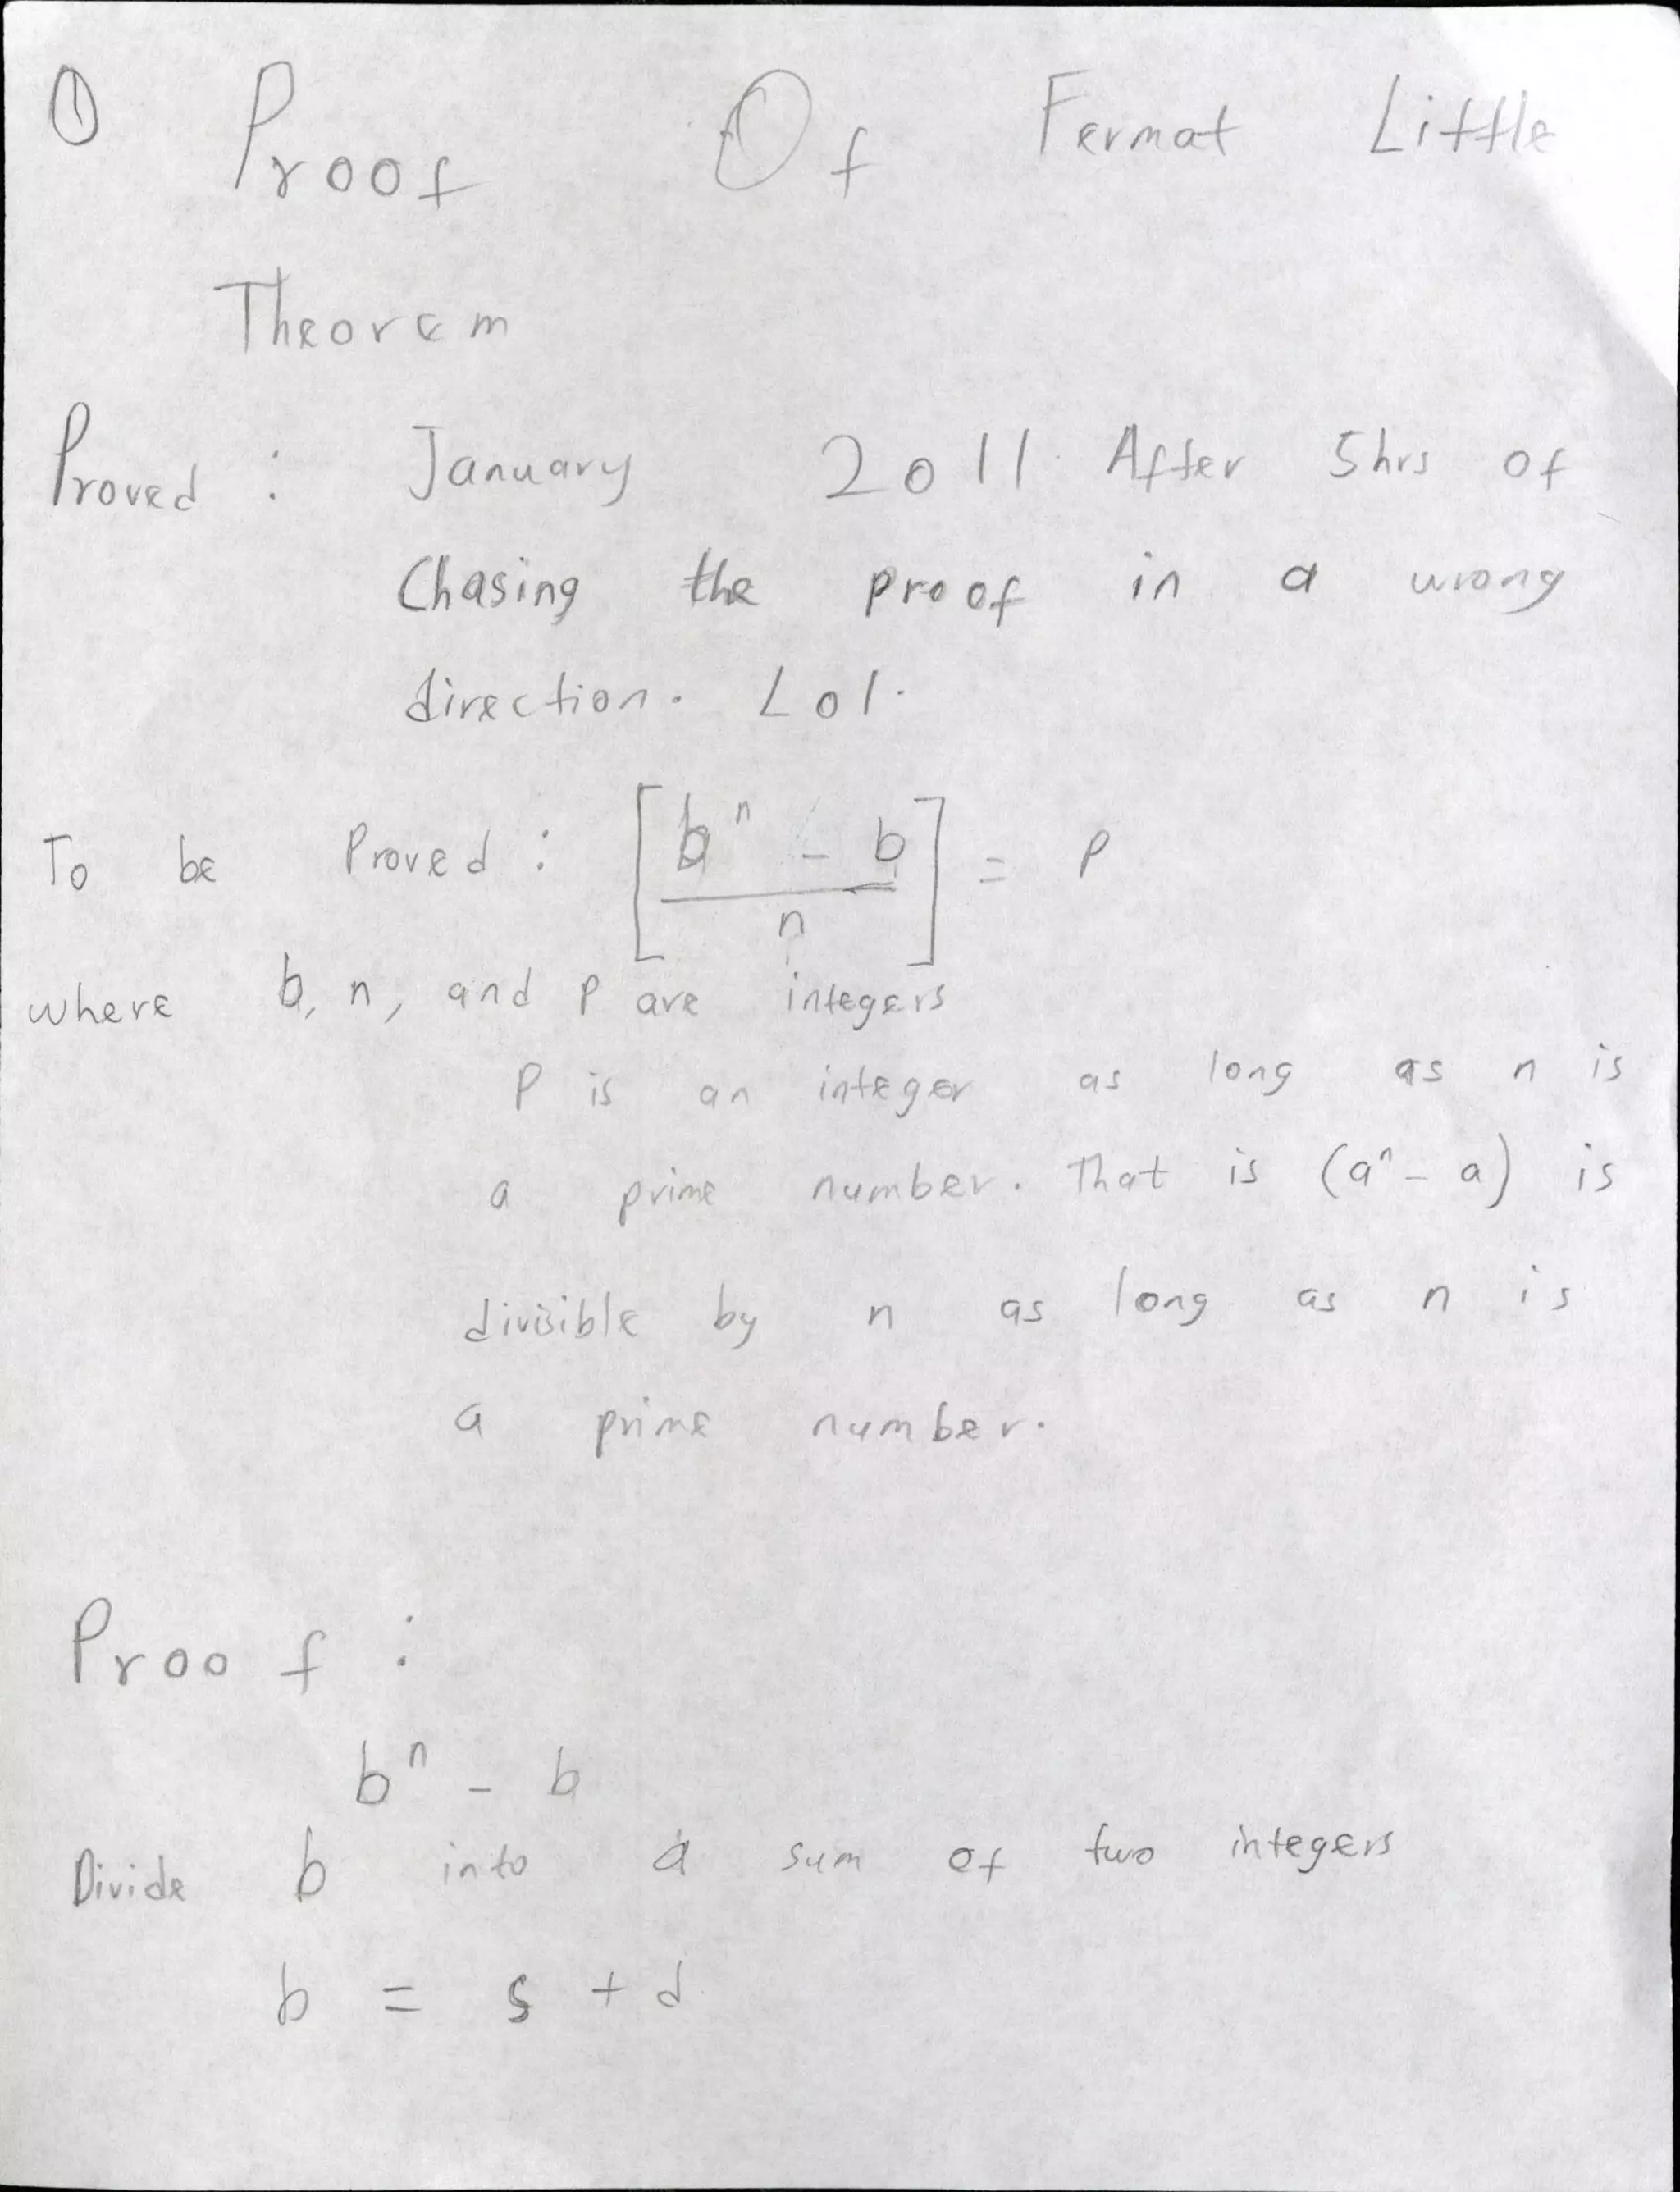 ① Proof Of Fermat Little
Theorem
Proved : January 2011. After 5hrs of
Chasing the proof in a wrong
direction. Lol.
To be Proved : [(bⁿ - b)/n] = P
where b, n, and P are integers
P is an integer as long as n is
a prime number. That is (aⁿ - a) is
divisible by n as long as n is
a prime number.
Proof :
bⁿ - b
Divide b into a sum of two integers
b = s + d